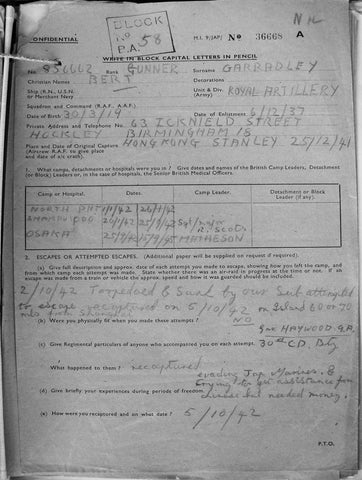 BLOCK
NO 58
P.A.
CONFIDENTIAL
M.I. 9/JAP/ No 36668 A
WRITE IN BLOCK CAPITAL LETTERS IN PENCIL
No. 856662 Rank GUNNER Surname GARRADLEY
Christian Names BERT Decorations
Ship (R.N., U.S.N. or Merchant Navy Unit & Div. (Army) ROYAL ARTILLERY
Squadron and Command (R.A.F., A.A.F.)
Date of Birth 30/3/19 Date of Enlistment 6/12/37
Private Address and Telephone No. 63 ICKNIELD STREET
HOCKLEY BIRMINGHAM 15
Place and Date of Original Capture HONG KONG STANLEY 25/12/41
(Aircrew R.A.F. to give place and date of a/c crash).
1. What camps, detachments or hospitals were you in? Give dates and names of the British Camp Leaders, Detachment (or Block) Leaders or, in the case of hospitals, the Senior British Medical Officers.
Camp or Hospital. Dates. Camp Leader. Detachment or Block Leader (if any).
NORTH PNT /1/42 26/1/42
SHAMSHUIPO 26/1/42 25/9/42 Sgt/major
OSAKA 25/9/42 R. Scots MATHESON
2. ESCAPES OR ATTEMPTED ESCAPES. (Additional paper will be supplied on request if required).
(a) Give full description and approx. date of each attempt you made to escape, showing how you left the camp, and from which camp each attempt was made. State whether there was an air-raid in progress at the time or not. If an escape was made from a train or vehicle the approx. speed and how it was guarded should be included.
2/10/42 Torpedoed & Sunk by our Sub attempted
to escape recaptured on 5/10/42 on Island 60 or 70
mls from Shanghai
(b) Were you physically fit when you made these attempts? NO
Gnr HAYWOOD R.A.
(c) Give Regimental particulars of anyone who accompanied you on each attempt. 30th CD. Bty
What happened to them? recaptured
evading Jap Marines &
(d) Give briefly your experiences during periods of freedom trying to get assistance from
Chinese but needed money.
(e) How were you recaptured and on what date? 5/10/42
P.T.O.